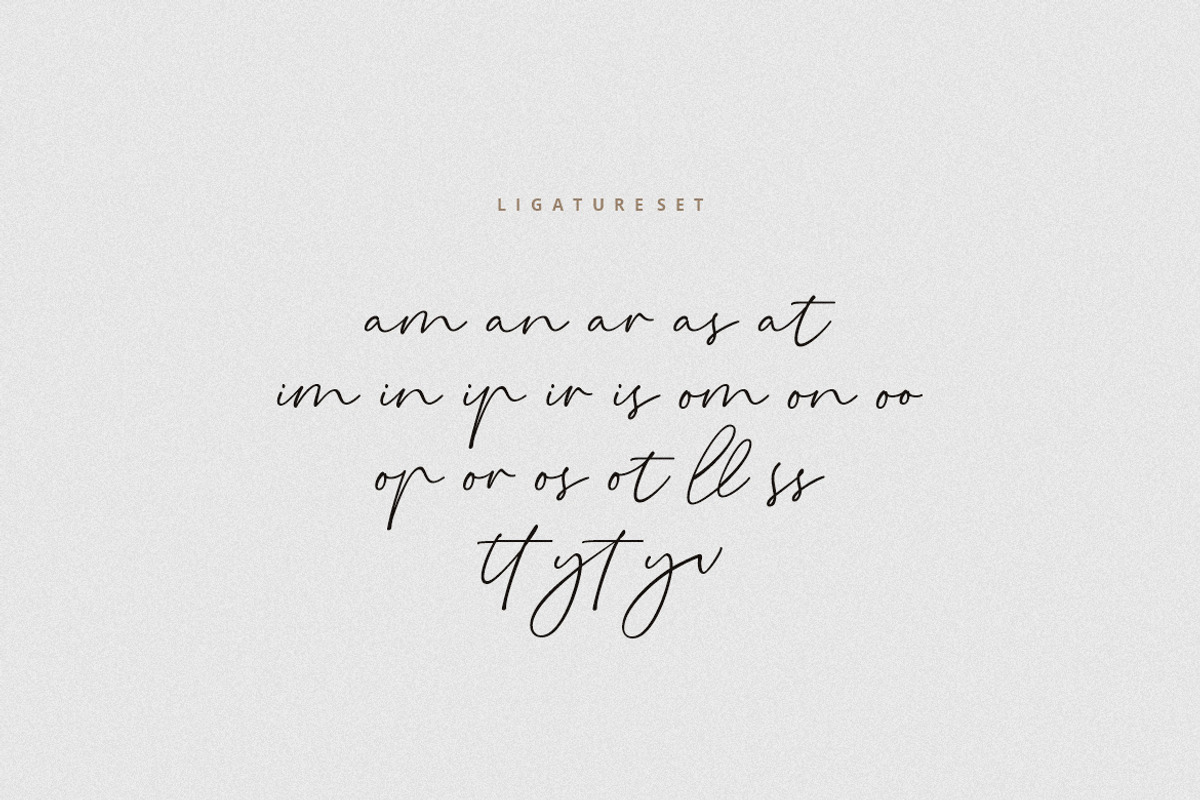 LIGATURE SET
am an ar as at
im in ip ir is om on oo
op or os ot ll ss
tt yt yv